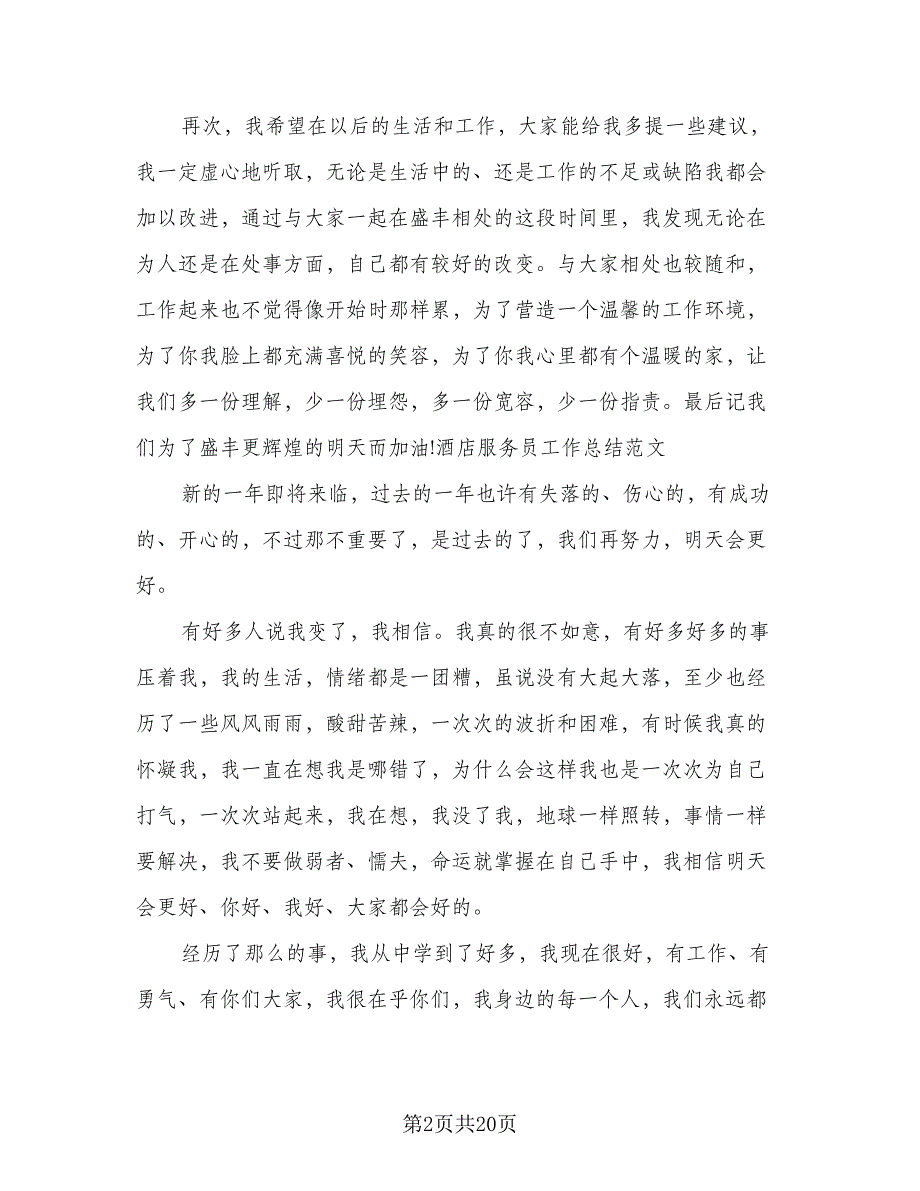 再次，我希望在以后的生活和工作，大家能给我多提一些建议，
我一定虚心地听取，无论是生活中的、还是工作的不足或缺陷我都会
加以改进，通过与大家一起在盛丰相处的这段时间里，我发现无论在
为人还是在处事方面，自己都有较好的改变。与大家相处也较随和，
工作起来也不觉得像开始时那样累，为了营造一个温馨的工作环境，
为了你我脸上都充满喜悦的笑容，为了你我心里都有个温暖的家，让
我们多一份理解，少一份埋怨，多一份宽容，少一份指责。最后记我
们为了盛丰更辉煌的明天而加油!酒店服务员工作总结范文
新的一年即将来临，过去的一年也许有失落的、伤心的，有成功
的、开心的，不过那不重要了，是过去的了，我们再努力，明天会更
好。
有好多人说我变了，我相信。我真的很不如意，有好多好多的事
压着我，我的生活，情绪都是一团糟，虽说没有大起大落，至少也经
历了一些风风雨雨，酸甜苦辣，一次次的波折和困难，有时候我真的
怀凝我，我一直在想我是哪错了，为什么会这样我也是一次次为自己
打气，一次次站起来，我在想，我没了我，地球一样照转，事情一样
要解决，我不要做弱者、懦夫，命运就掌握在自己手中，我相信明天
会更好、你好、我好、大家都会好的。
经历了那么的事，我从中学到了好多，我现在很好，有工作、有
勇气、有你们大家，我很在乎你们，我身边的每一个人，我们永远都
第2页共20页